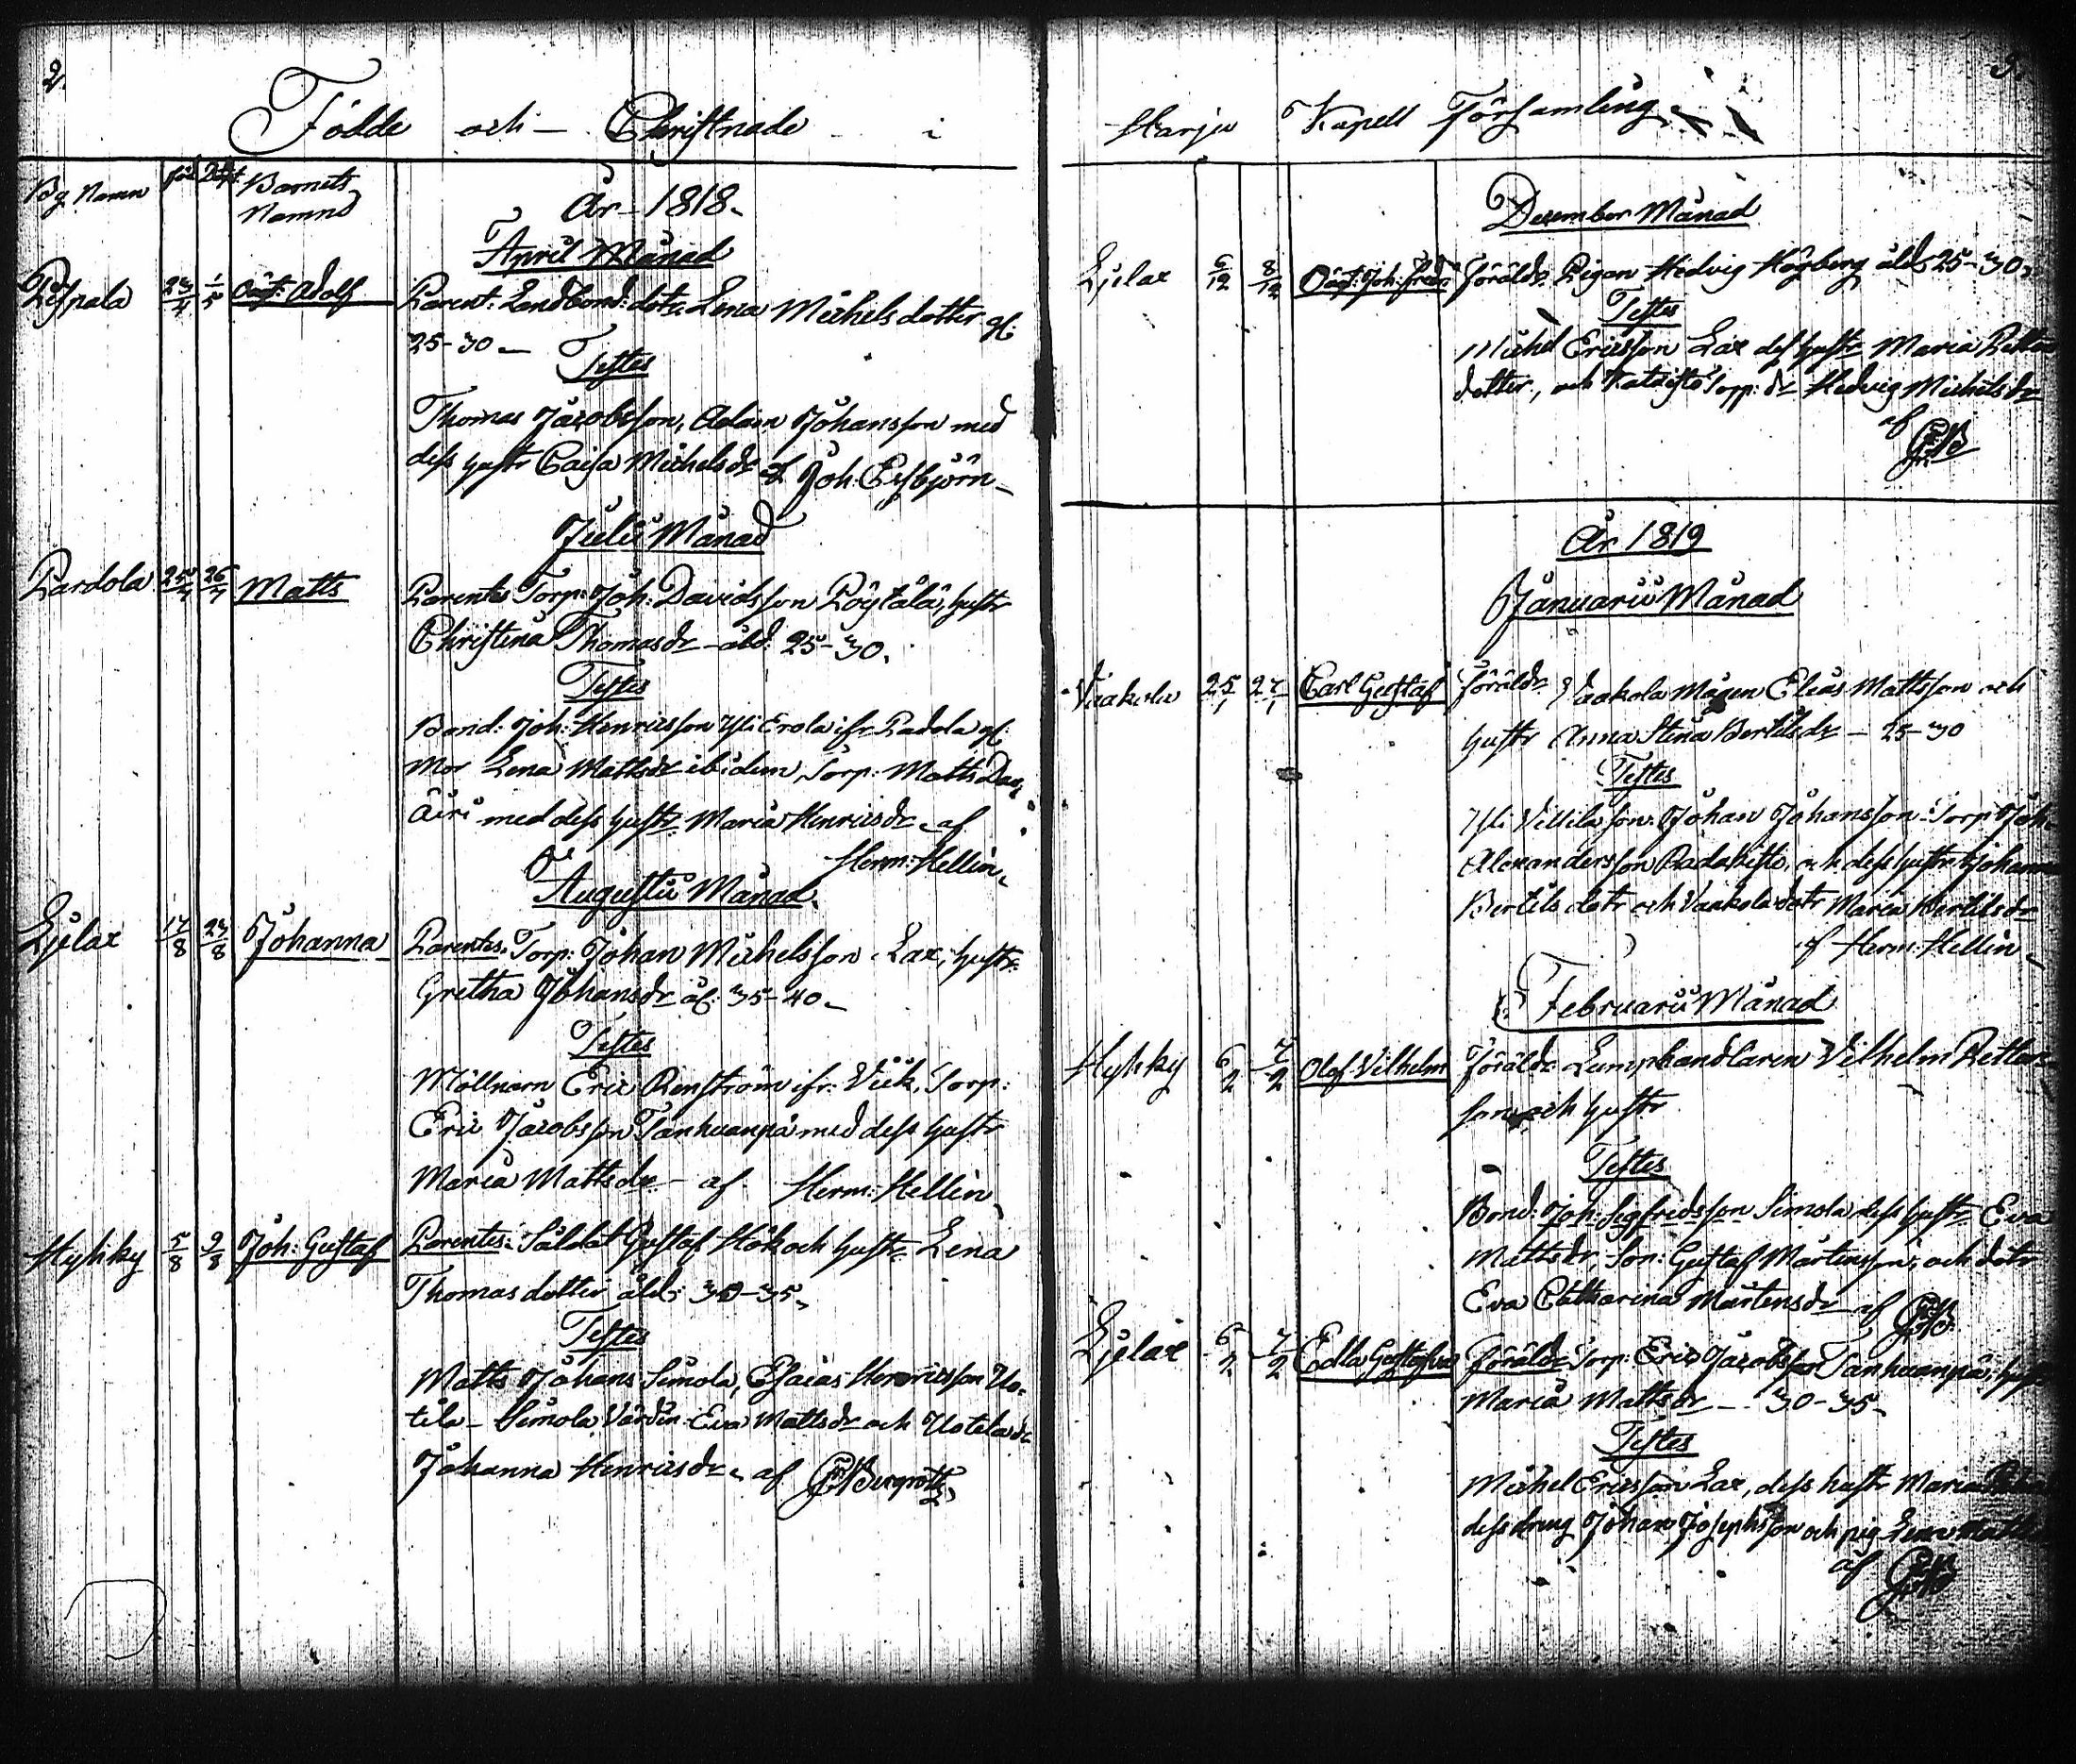 2.
Födde och Christnade i
By Namn föd döpt Barnets
Namn
År 1818.
April Månad
23/4 1/5 Oäg: Adolf Parent: Landbond: dotr. Lena Michels dotter gl:
25-30
Testes
Thomas Jacobsson, Adam Johansson med
dess hustr Caisa Michelsdr af Joh: Esbjörn
Julii Månad
Pardola 25/7 26/7 Matts Parentes Torp: Joh: Davidsson Pöytälä, hustr
Christina Thomasdr åld. 25-30.
Testes
Bond: Joh: Henricsson Yli Erola ifr Padola gl:
mor Lena Mattsdr ibidem, Torp: Matts Dav:
Äiri med dess hustr Maria Henricsdr af
Herm: Hellin
Augusti Månad
Liljelax 17/8 23/8 Johanna Parentes Torp: Johan Michelsson Lax, hustr
Gretha Johansdr ål: 35-40
Testes
Möllnarn Eric Renström ifr: Viik, Torp:
Eric Jacobsson Tanhuanpä med dess hustr
Maria Mattsdr af Herm: Hellin
Hyhky 5/8 9/8 Joh: Gustaf Parentes Saldat Gustaf Hök och hustr Lena
Thomas dotter åld: 30-35
Testes
Matts Johans Simola, Esaias Henricsson Uo-
tila Simola Värdin Eva Mattsdr och Uotila dr
Johanna Henricsdr af Bergroth
3.
Harju Kapell Församling
December Månad
6/12 8/12 Oäg: Joh: Föräldr. Pigan Hedvig Högberg åld 25-30
Testes
Michel Ericsson Lax dess hustr Maria
dotter, och Torp: dr Hedvig Michelsdr
af
År 1819
Januarii Månad
Vaakola 25/1 27/1 Carl Gustaf Föräldr. Vaakola Mågen Elias Mattsson och
hustr Anna Stina Bertilsdr 25-30
Testes
Yli Vellila son: Johan Johansson Torp Joh:
Alexandersson och dess hustr Johanna
Bertils dotr och Vaakola dotr Maria Bertilsdr
af Herm: Hellin
Februarii Månad
Hyhky 6/2 7/2 Olof Vilhelm Föräldr. Lumphandlaren Vilhelm
son och hustr
Testes
Bond: Joh: Sigfredsson Simola dess hustr Eva
Mattsdr, Son: Gustaf Mårtensson, och dotr
Eva Catharina Mårtensdr af
6/2 7/2 Edla Föräldr Torp: Eric Jacobsson Tanhuanpä, hustr
Maria Mattsdr 30-35
Testes
Michel Ericsson Lax, dess hustr Maria
dess dreng Johan Josephsson och pig Lena
af